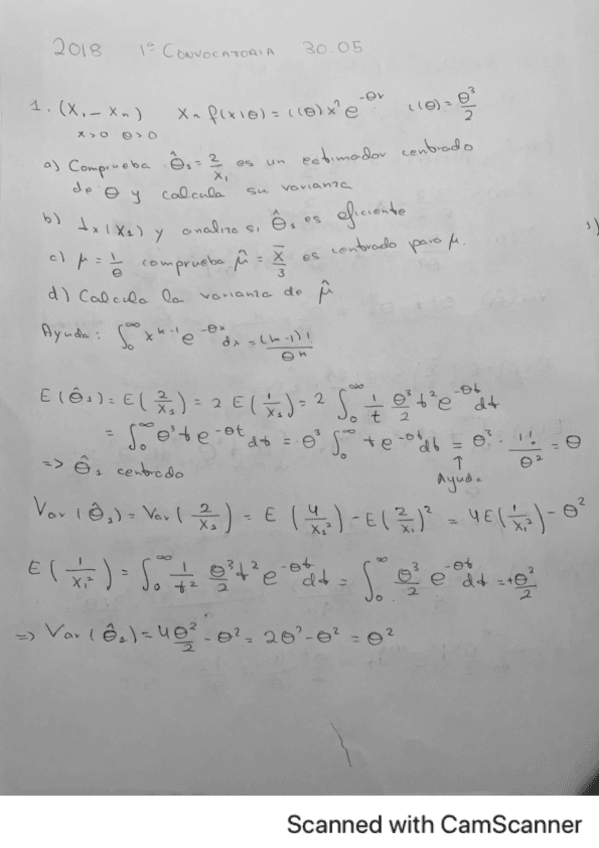 2018 1º CONVOCATORIA 30.05
1. (X₁ – Xₙ) X ~ f(x|θ) = c(θ) x² e^{-θx} c(θ) = θ³/2
x>0 θ>0
a) Comprueba θ̂₁ = 2/X₁ es un estimador centrado
de θ y calcula su varianza
b) Iₓ(X₁) y analiza si θ̂₁ es eficiente
c) μ = 1/θ comprueba μ̂ = X̄/3 es centrado para μ.
d) Calcula la varianza de μ̂
Ayuda: ∫₀^∞ x^{n-1} e^{-θx} dx = (n-1)!/θⁿ
E(θ̂₁) = E(2/X₁) = 2 E(1/X₁) = 2 ∫₀^∞ 1/t θ³/2 t² e^{-θt} dt
= ∫₀^∞ θ³ t e^{-θt} dt = θ³ ∫₀^∞ t e^{-θt} dt = θ³ · 1!/θ² = θ
↑
Ayuda
=> θ̂₁ centrado
Var(θ̂₁) = Var(2/X₁) = E(4/X₁²) - E(2/X₁)² = 4E(1/X₁²) - θ²
E(1/X₁²) = ∫₀^∞ 1/t² θ³/2 t² e^{-θt} dt = ∫₀^∞ θ³/2 e^{-θt} dt = +θ²/2
=> Var(θ̂₁) = 4θ²/2 - θ² = 2θ² - θ² = θ²
Scanned with CamScanner